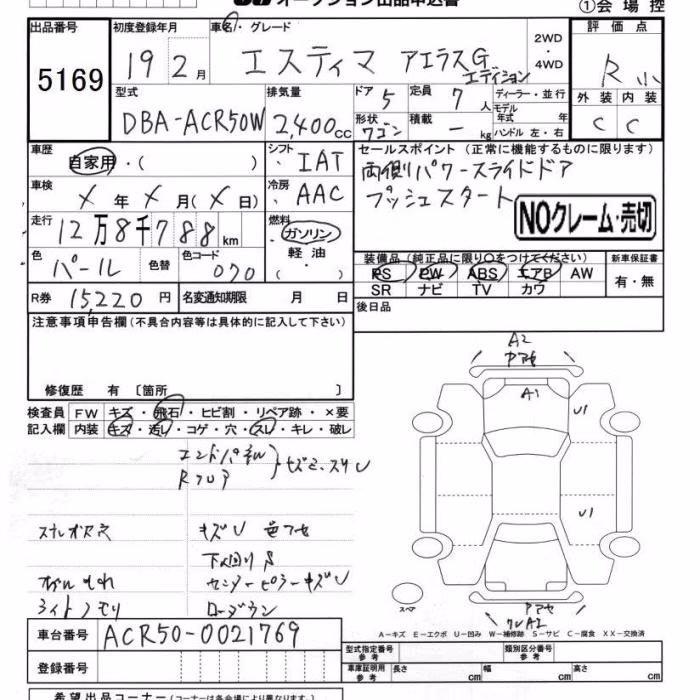 オークション出品申込書
①会場控
出品番号 初度登録年月 車名・グレード 評価点
5169 19 2月 エスティマ アエラスG エディション 2WD・4WD R小
型式 排気量 ドア 定員 ディーラー・並行 外装 内装
DBA-ACR50W 2,400cc 5 7人 モデル年式 年 C C
形状 ワゴン 積載 ー kg ハンドル 左・右
車歴 シフト セールスポイント(正常に機能するものに限ります)
自家用・( ) IAT 両側パワースライドドア
車検 冷房 プッシュスタート
×年×月(×日) AAC NOクレーム・売切
走行 燃料
12万8千788km ガソリン・軽油・( )
色 色替 色コード 装備品(純正品に限り〇をつけてください) 新車保証書
パール 070 PS PW ABS エアB AW 有・無
SR ナビ TV カワ
R券 15,220円 名変通知期限 月 日 後日品
注意事項申告欄(不具合内容等は具体的に記入して下さい)
修復歴 有〔箇所 〕
検査員 FW キズ・飛石・ヒビ割・リペア跡・×要
記入欄 内装 キズ・汚レ・コゲ・穴・スレ・キレ・破レ
A2
A1
U1
U1
Rフロア
キズU
下廻りS
センターピラーキズU
ライトクモリ ローダウン
A2
スペア
A-キズ E-エクボ U-凹み W-補修跡 S-サビ C-腐食 XX-交換済
車台番号 ACR50-0021769
登録番号
型式指定番号 参考 類別区分番号 参考
車庫証明用 参考 長さ cm 幅 cm 高さ cm
希望出品コーナー(コーナーは各会場により異なります)